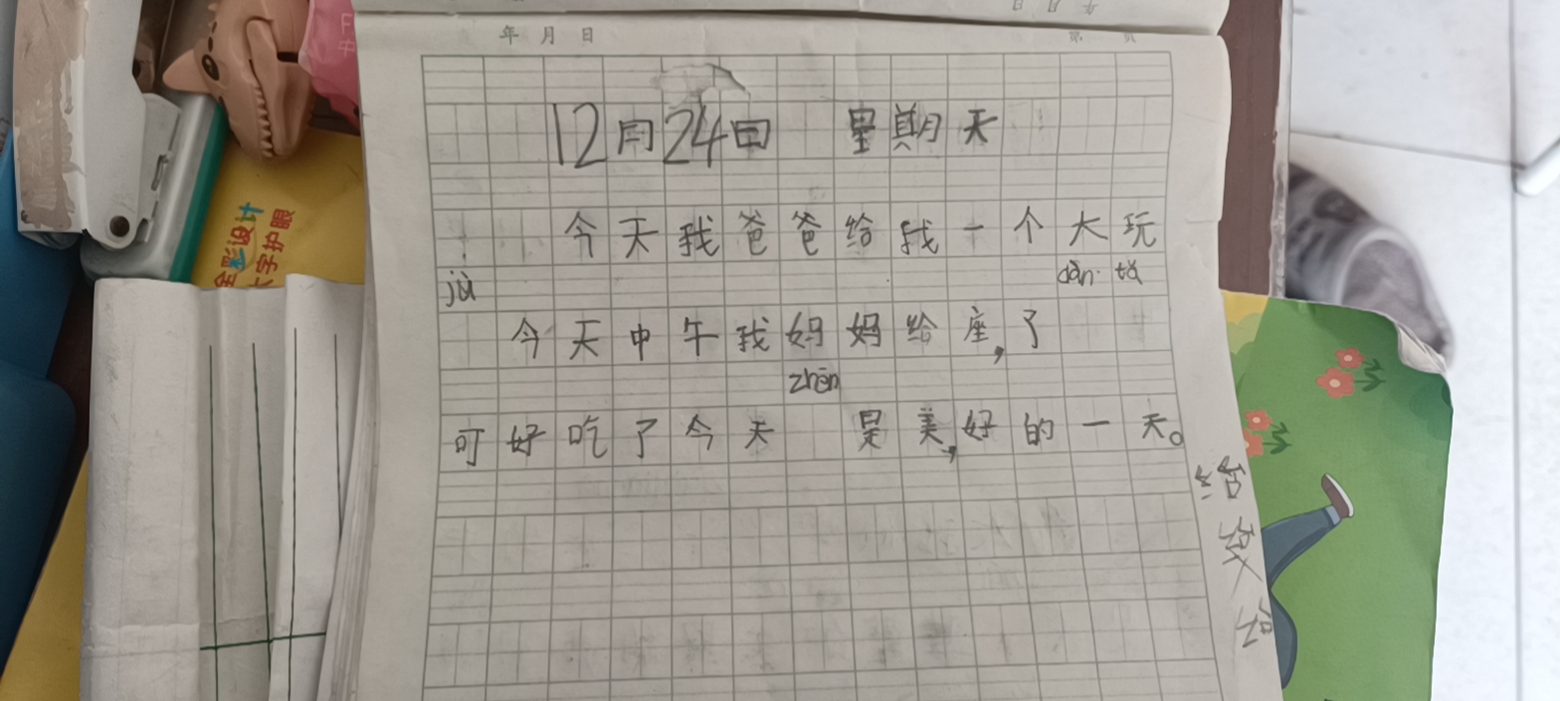 年 月 日
第 页
12月24日 星期天
今天我爸爸给我一个大玩
jù dàn tǎ
今天中午我妈妈给座,了
zhēn
可好吃了今天 是美,好的一天。
全彩设计
大字护眼